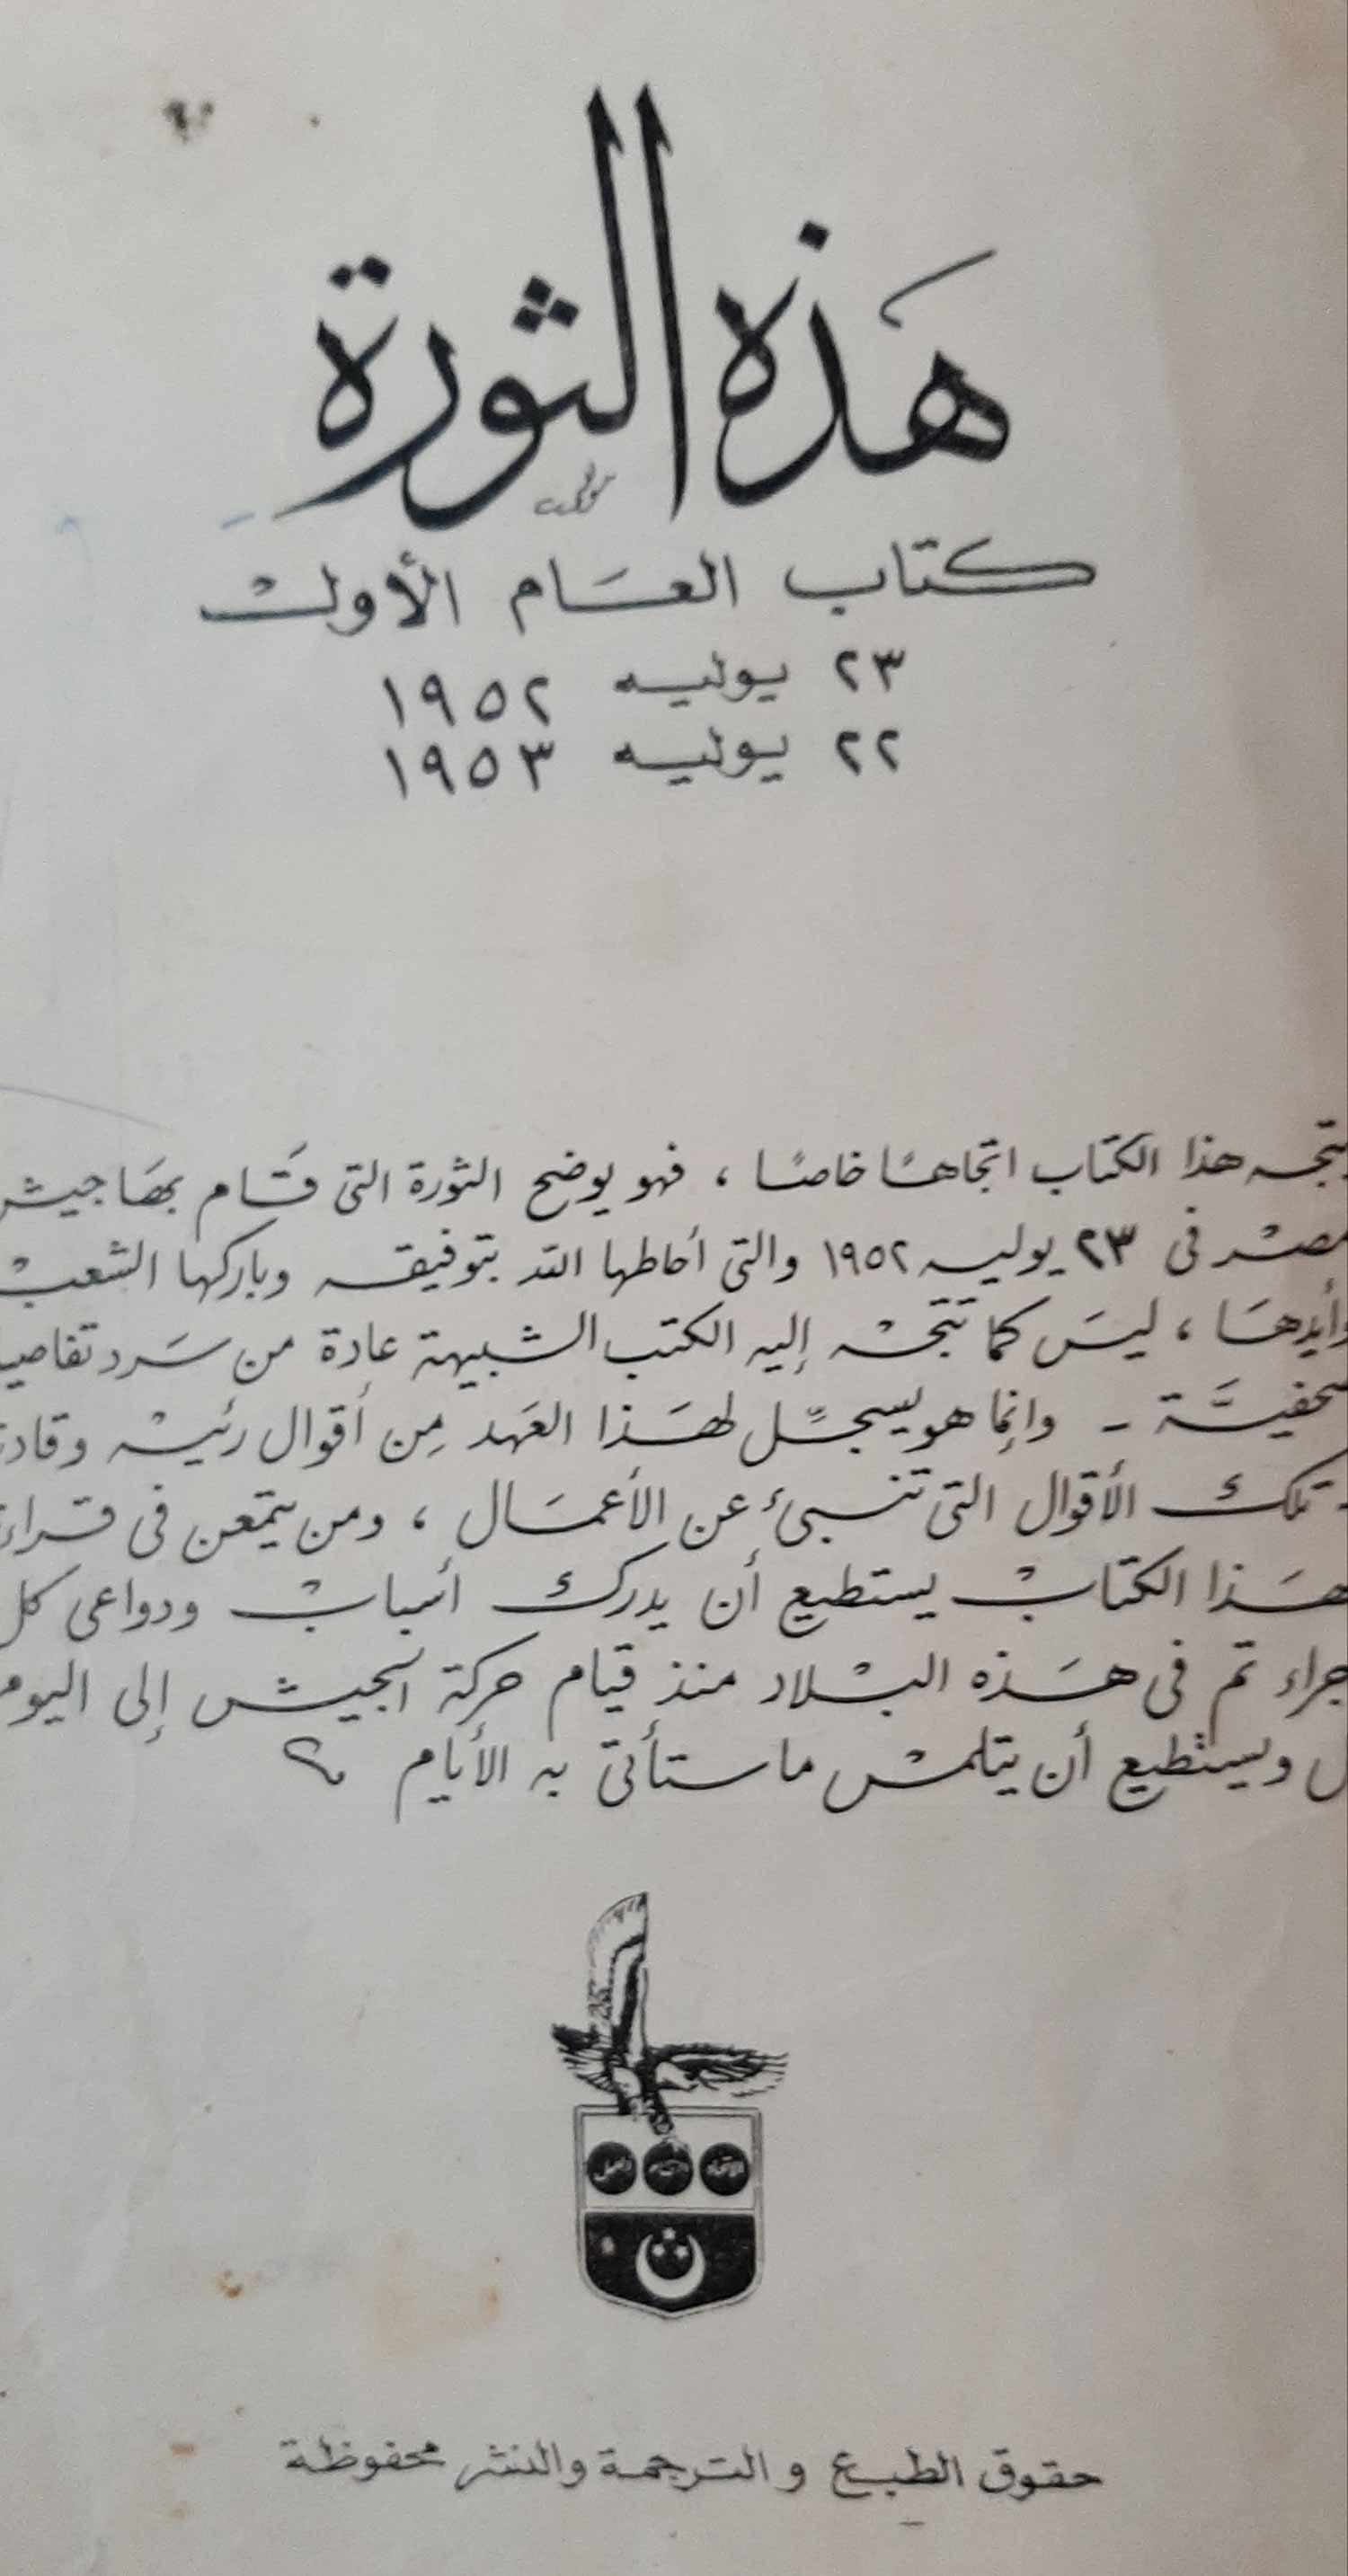 هَذِه الثورة
كتاب العَام الأول
٢٣ يوليه ١٩٥٢
٢٢ يوليه ١٩٥٣
يتجه هذا الكتاب اتجاهًا خاصًا ، فهو يوضح الثورة التى قَام بهَا جيش
مصر فى ٢٣ يوليه ١٩٥٢ والتى أحاطها الله بتوفيقه وباركها الشعب
وأيدهَا ، ليسَ كما تتجه إليه الكتب الشبيهة عادة من سَرد تفاصيل
صحفيَّة - وإنما هو يسجِّل لهَذا العَهد مِن أقوال رئيسه وقادته
- تلك الأقوال التى تنبىء عن الأعمَال ، ومن يتمعن فى قراءة
هَذا الكتاب يستطيع أن يدرك أسباب ودواعى كل
إجراء تم فى هَذه البلاد منذ قيام حركة الجيش إلى اليوم
بل ويستطيع أن يتلمس ما ستأتى به الأيام
الاتحاد
حقوق الطبع والترجمة والنشر محفوظة